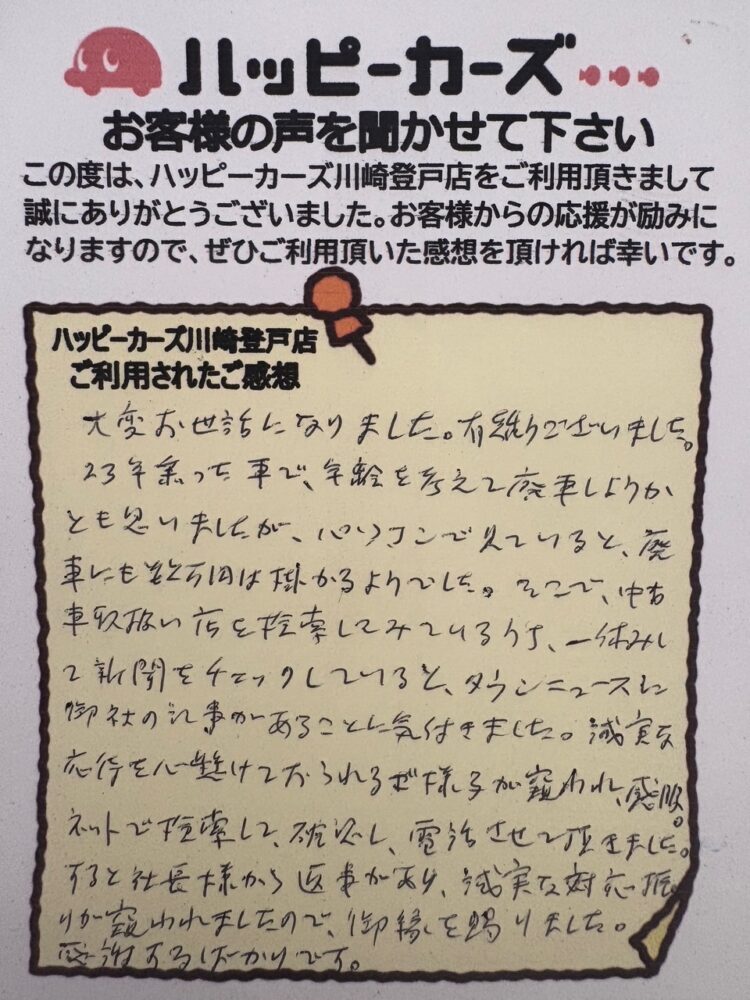 ハッピーカーズ
お客様の声を聞かせて下さい
この度は、ハッピーカーズ川崎登戸店をご利用頂きまして
誠にありがとうございました。お客様からの応援が励みに
なりますので、ぜひご利用頂いた感想を頂ければ幸いです。
ハッピーカーズ川崎登戸店
ご利用されたご感想
大変お世話になりました。有難うございました。
23年乗った車で、年齢を考えて廃車しようか
とも思いましたが、パソコンで見ていると、廃
車にも数万円は掛かるようでした。そこで、中古
車取扱い店を検索してみているうち、一休みし
て新聞をチェックしていると、タウンニュースに
御社の記事があることに気付きました。誠実な
応待を心懸けておられるご様子が窺われ、感服。
ネットで検索して、確認し、電話させて頂きました。
すると社長様から返事があり、誠実な対応振
りが窺われましたので、御縁を賜りました。
感謝するばかりです。